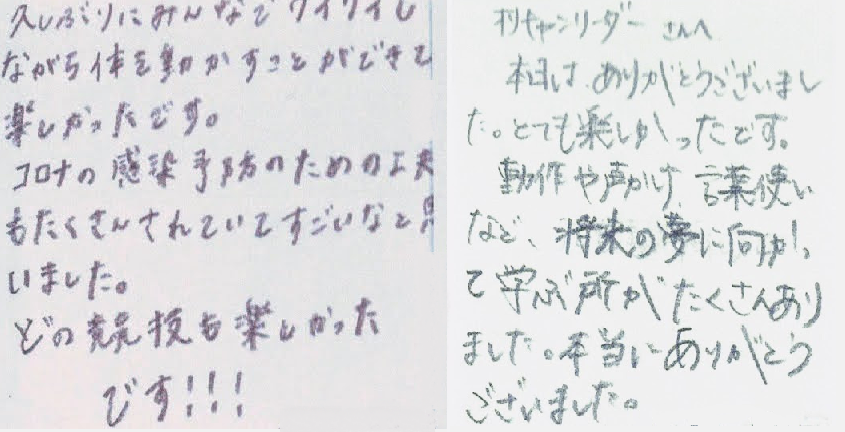 久しぶりにみんなでワイワイし
ながら体を動かすことができて
楽しかったです。
コロナの感染予防のための工夫
もたくさんされていてすごいなと思
いました。
どの競技も楽しかった
です!!!
キャンリーダー さんへ
本日は、ありがとうございまし
た。とても楽しかったです。
動作や声かけ、言葉使い
など、将来の夢に向かっ
て学ぶ所がたくさんあり
ました。本当にありがとう
ございました。